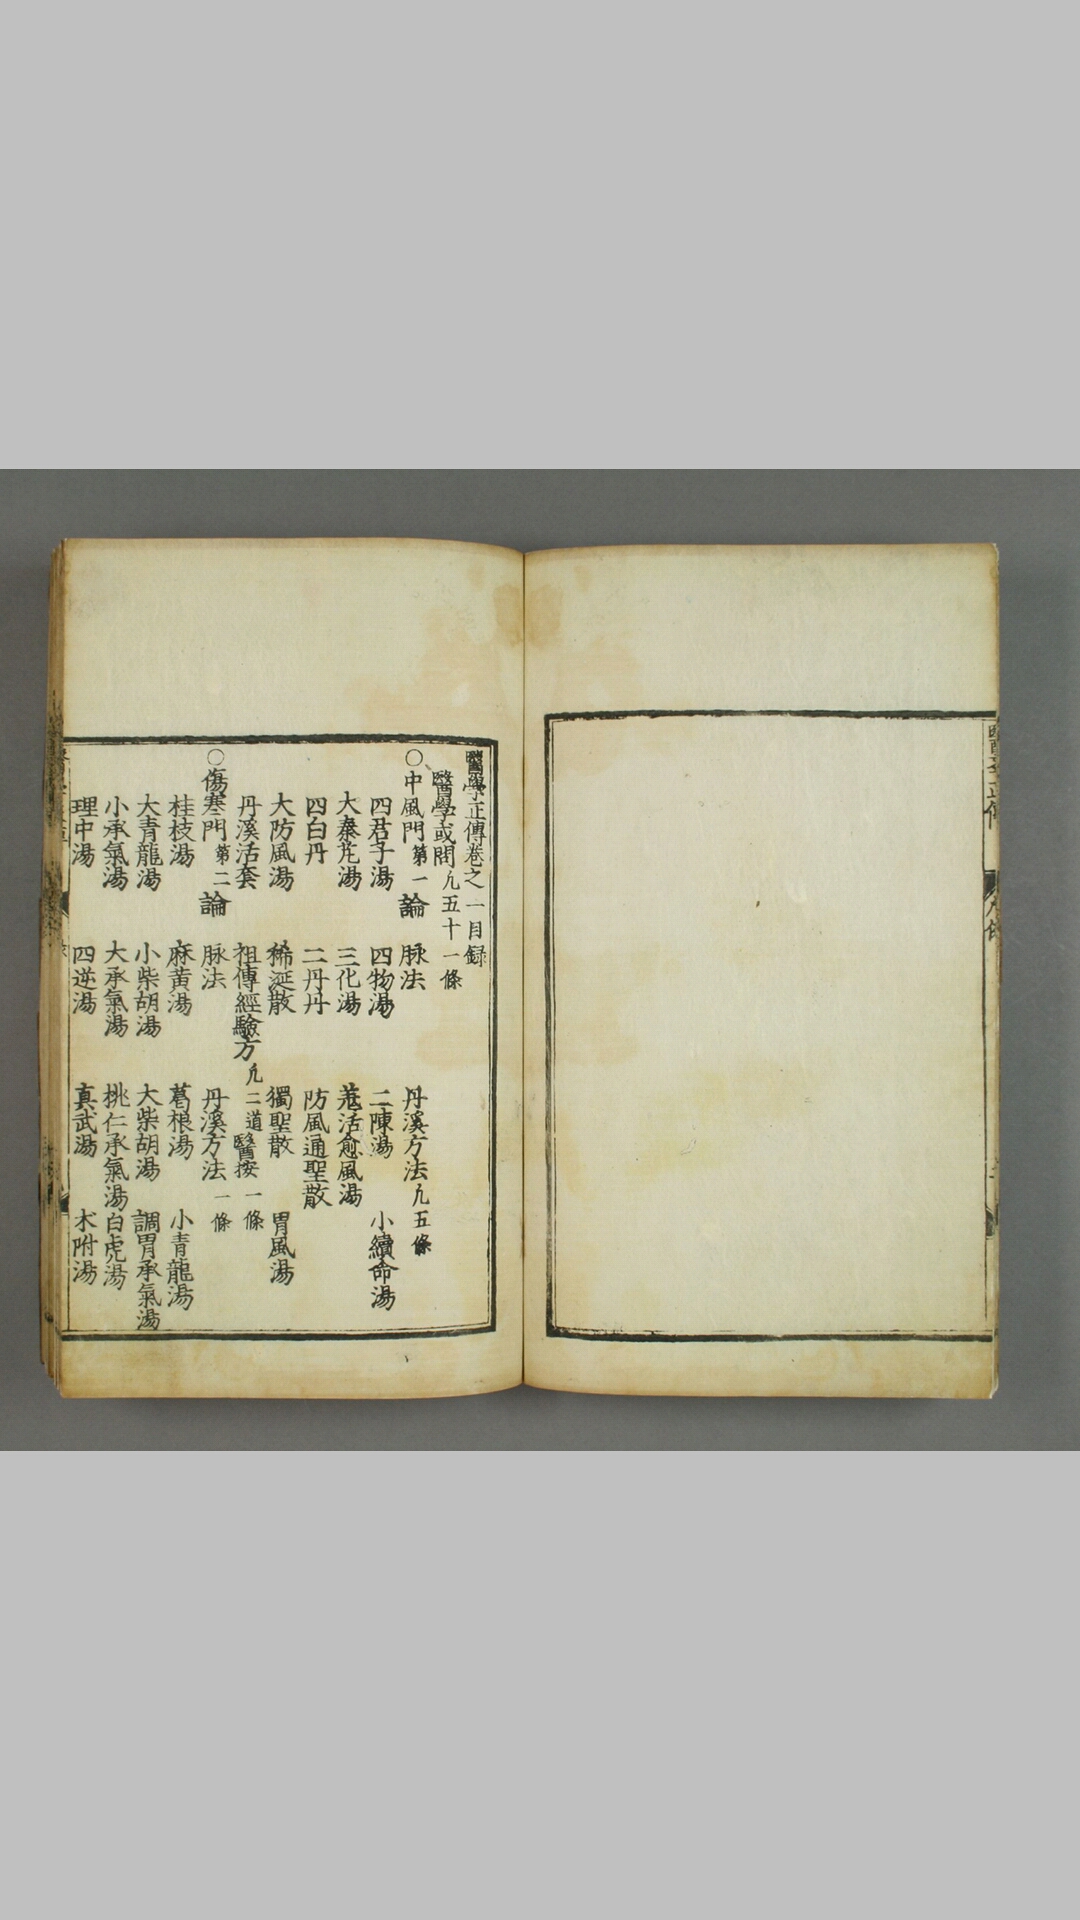 醫學正傳卷之一目録
醫學或問凢五十一條
○中風門第一 論 脉法 丹溪方法凢五條
四君子湯 四物湯 二陳湯 小續命湯
大秦芃湯 三化湯 羗活愈風湯
四白丹 二丹丹 防風通聖散
大防風湯 稀涎散 獨聖散 胃風湯
丹溪活套 祖傳經驗方凢二道 醫按一條
○傷寒門第二 論 脉法 丹溪方法一條
桂枝湯 麻黄湯 葛根湯 小青龍湯
大青龍湯 小柴胡湯 大柴胡湯 調胃承氣湯
小承氣湯 大承氣湯 桃仁承氣湯 白虎湯
理中湯 四逆湯 真武湯 术附湯